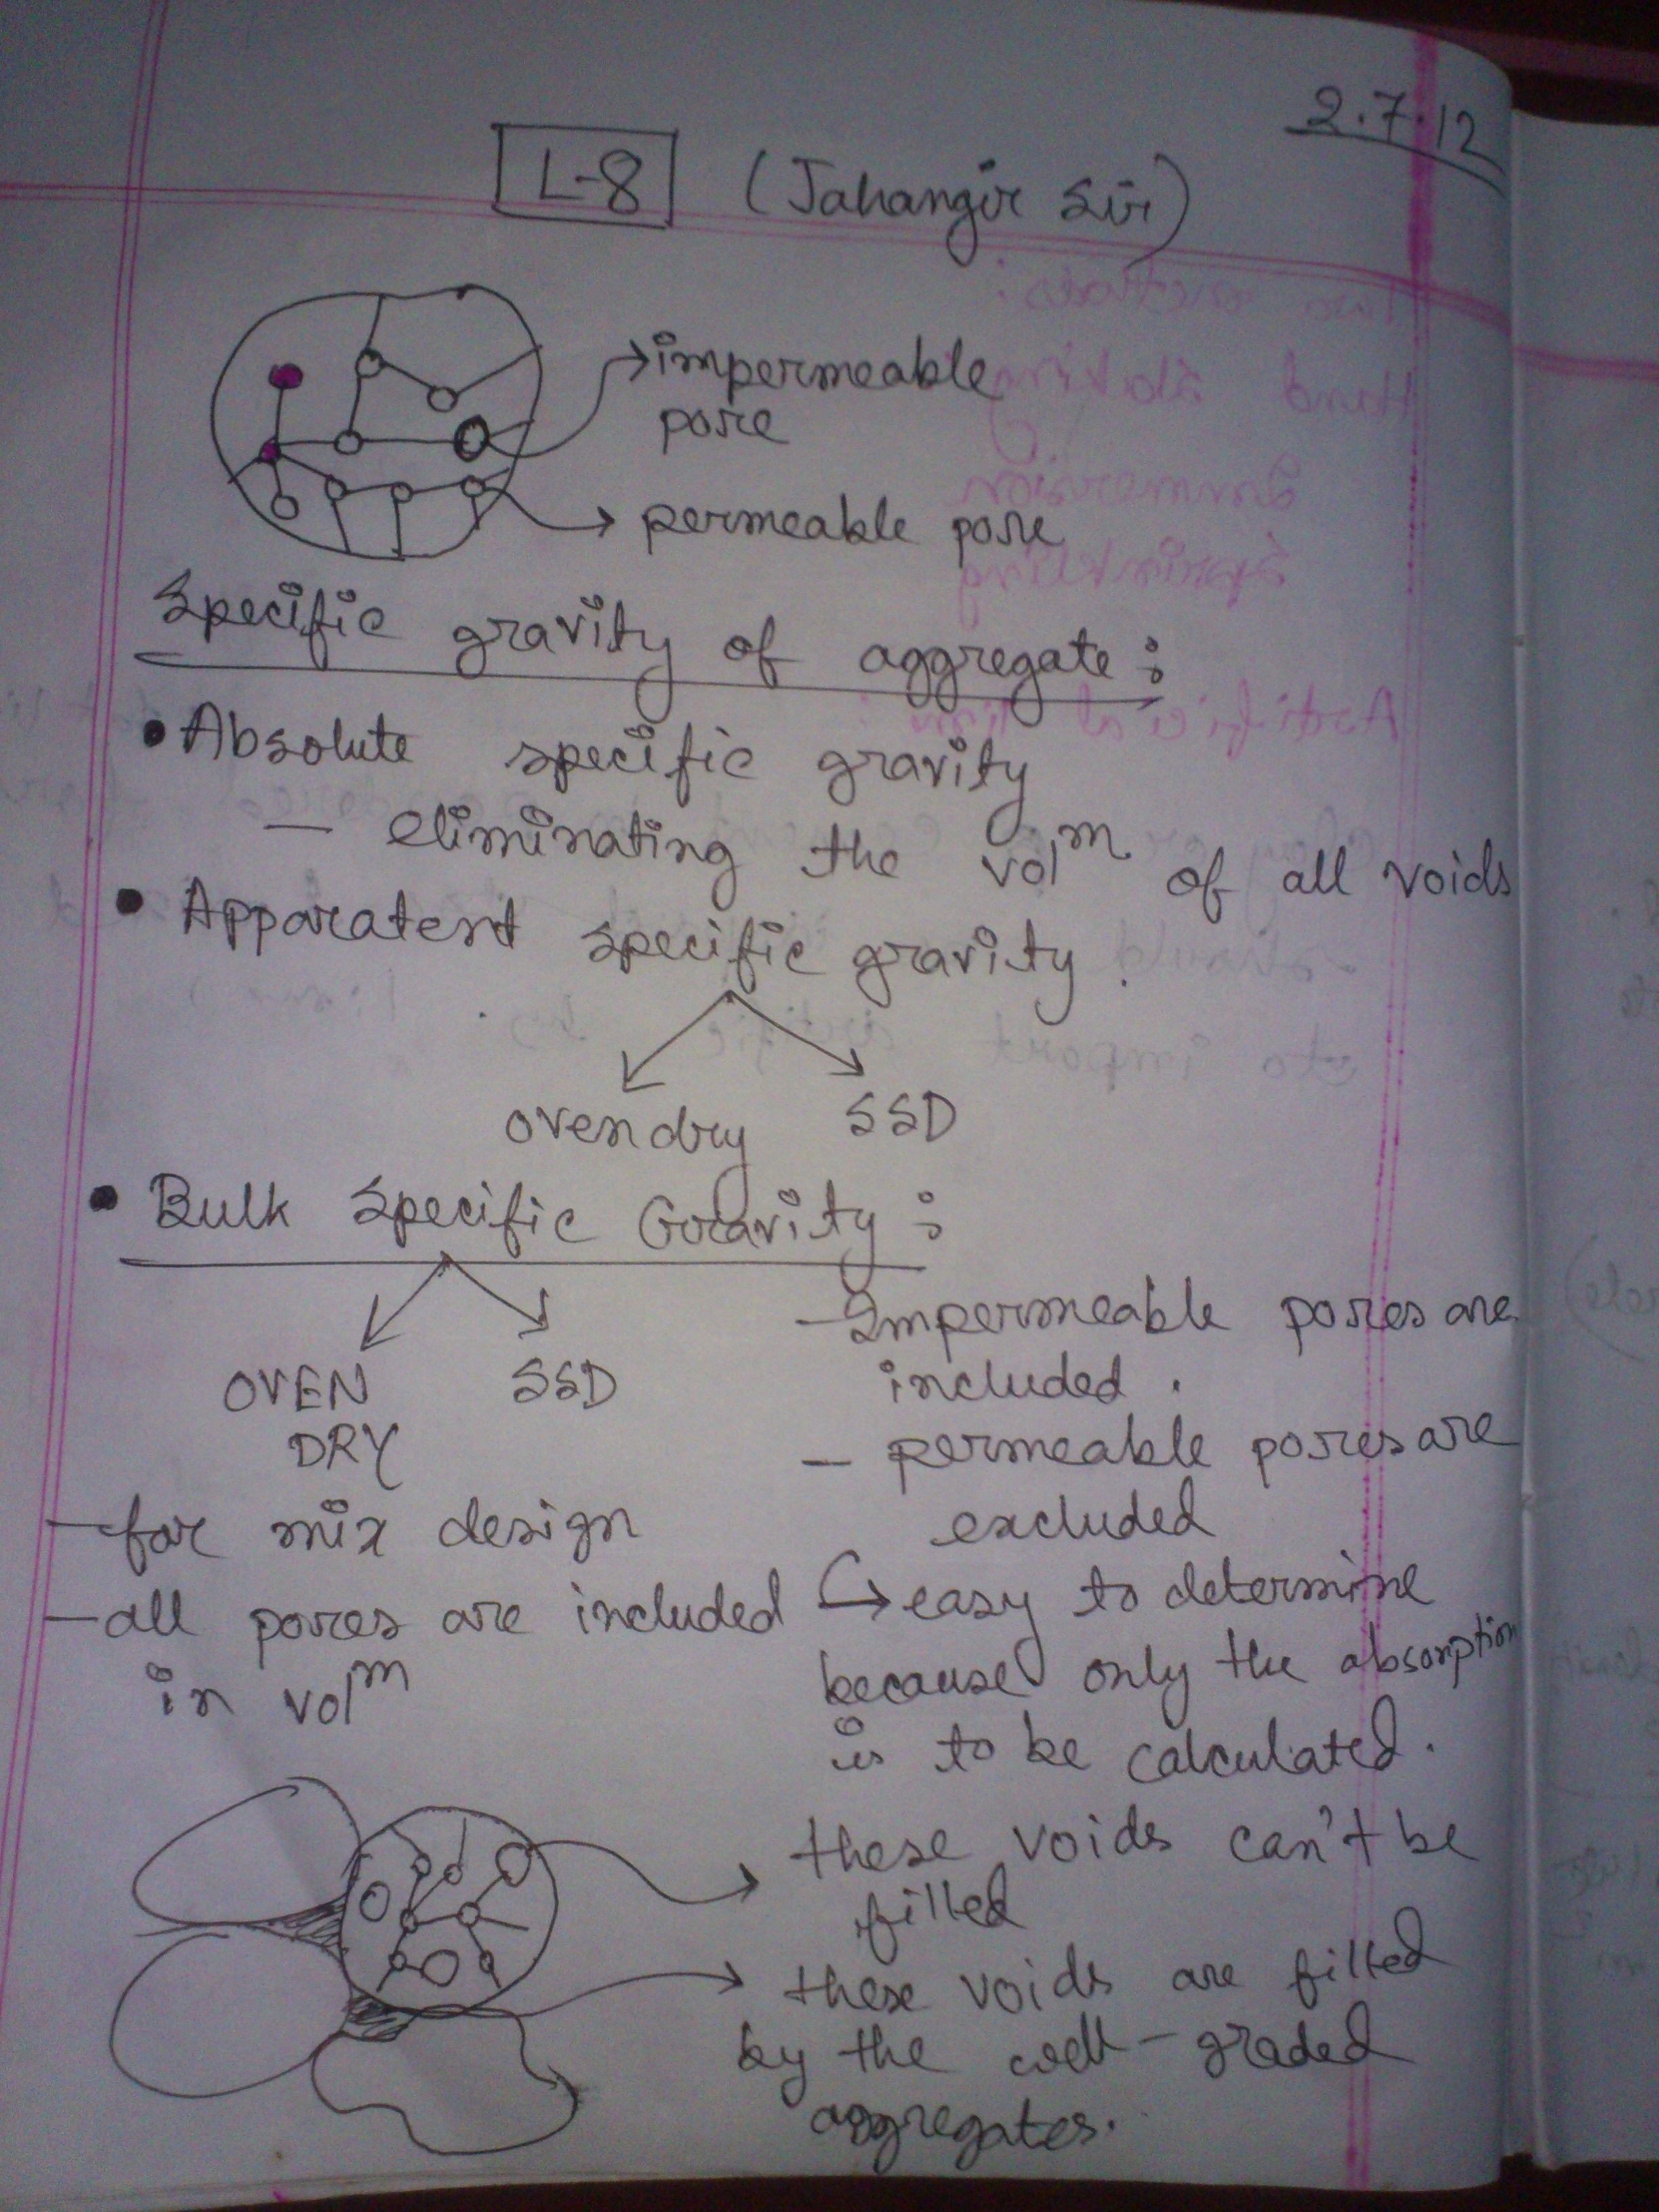 2.7.12
L-8 (Jahangir Sir)
impermeable
pore
permeable pore
Specific gravity of aggregate :
• Absolute specific gravity
— eliminating the vol^m of all voids
• Apparatent specific gravity.
oven dry SSD
• Bulk Specific Gravity :
OVEN SSD
DRY
— for mix design
— all pores are included
in vol^m
— Impermeable pores are
included.
— permeable pores are
excluded
↳ easy to determine
because only the absorption
is to be calculated.
these voids can't be
filled
these voids are filled
by the well-graded
aggregates.